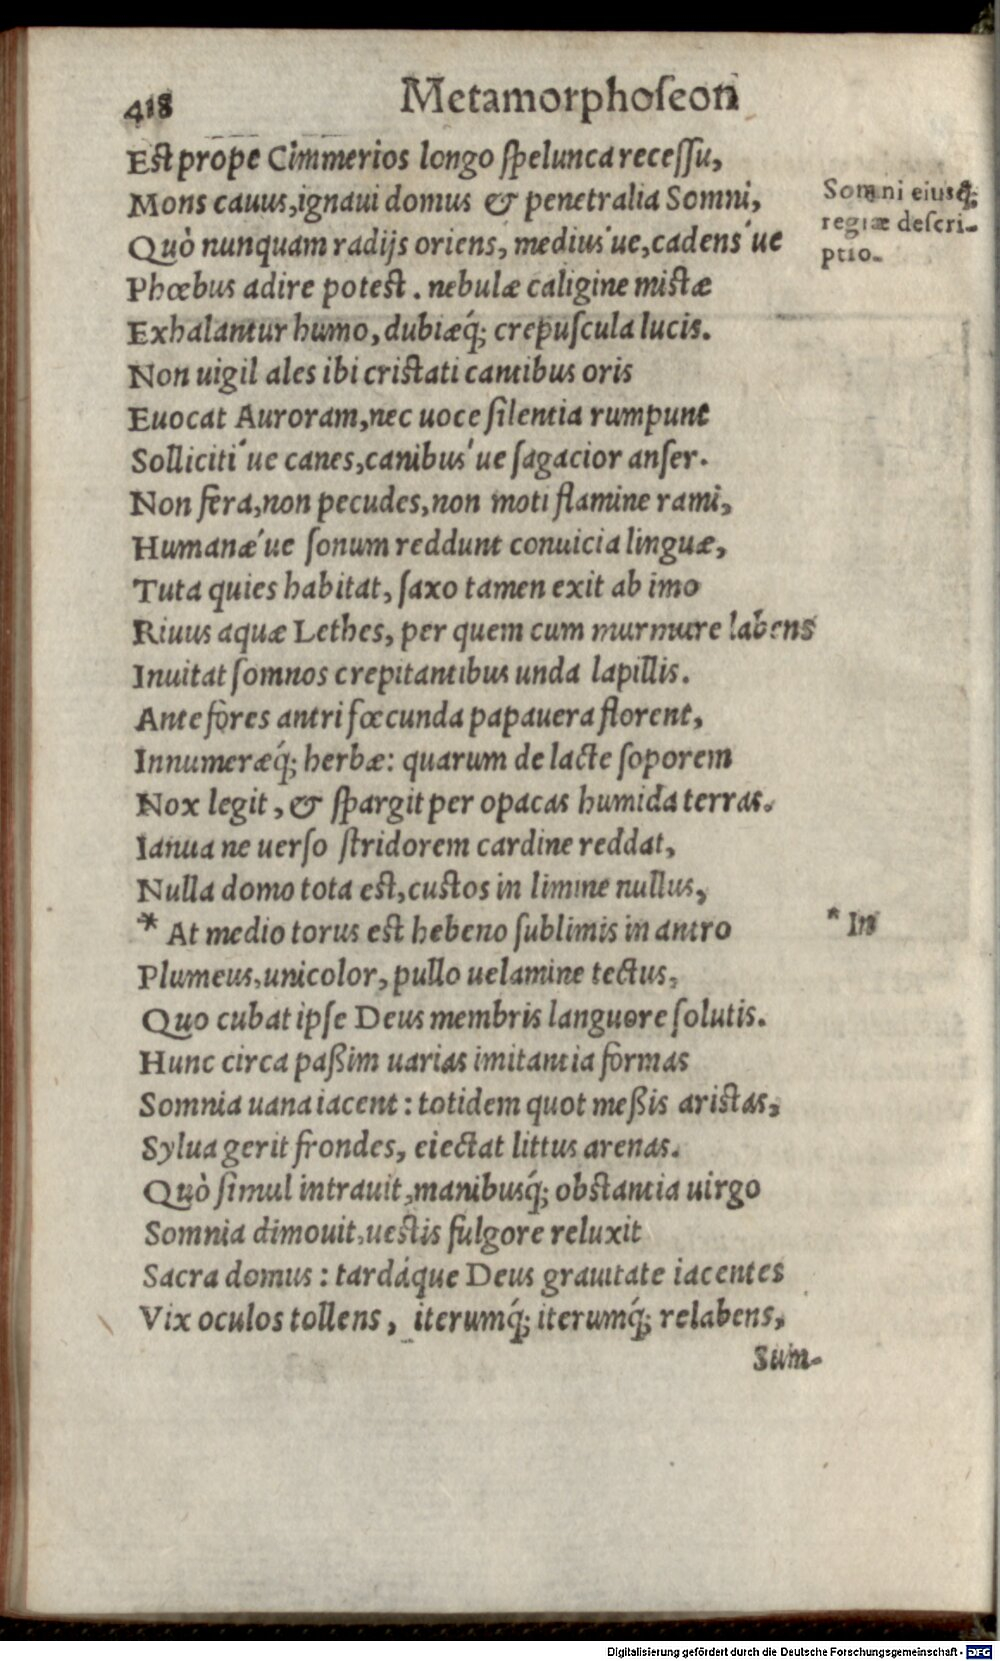 418 Metamorphoſeon
Eſt prope Cimmerios longo ſpelunca receſſu,
Mons cauus, ignaui domus & penetralia Somni,
Somni eiusq́;
regiæ deſcri-
ptio.
Quò nunquam radijs oriens, medius´ue, cadens´ue
Phœbus adire poteſt. nebulæ caligine miſtæ
Exhalantur humo, dubiæq́; crepuſcula lucis.
Non uigil ales ibi criſtati cantibus oris
Euocat Auroram, nec uoce ſilentia rumpunt
Solliciti´ue canes, canibus´ue ſagacior anſer.
Non fera, non pecudes, non moti flamine rami,
Humanæ´ue ſonum reddunt conuicia linguæ,
Tuta quies habitat, ſaxo tamen exit ab imo
Riuus aquæ Lethes, per quem cum murmure labens
Inuitat ſomnos crepitantibus unda lapillis.
Ante fores antri fœcunda papauera florent,
Innumeræq́; herbæ: quarum de lacte ſoporem
Nox legit, & ſpargit per opacas humida terras.
Ianua ne uerſo ſtridorem cardine reddat,
Nulla domo tota eſt, cuſtos in limine nullus,
* At medio torus eſt hebeno ſublimis in antro
* In
Plumeus, unicolor, pullo uelamine tectus,
Quo cubat ipſe Deus membris languore ſolutis.
Hunc circa paßim uarias imitantia formas
Somnia uana iacent: totidem quot meßis ariſtas,
Sylua gerit frondes, eiectat littus arenas.
Quò ſimul intrauit, manibusq́; obſtantia uirgo
Somnia dimouit, ueſtis fulgore reluxit
Sacra domus: tardáque Deus grauitate iacentes
Vix oculos tollens, iterumq́; iterumq́; relabens,
Sum-
Digitalisierung gefördert durch die Deutsche Forschungsgemeinschaft - DFG